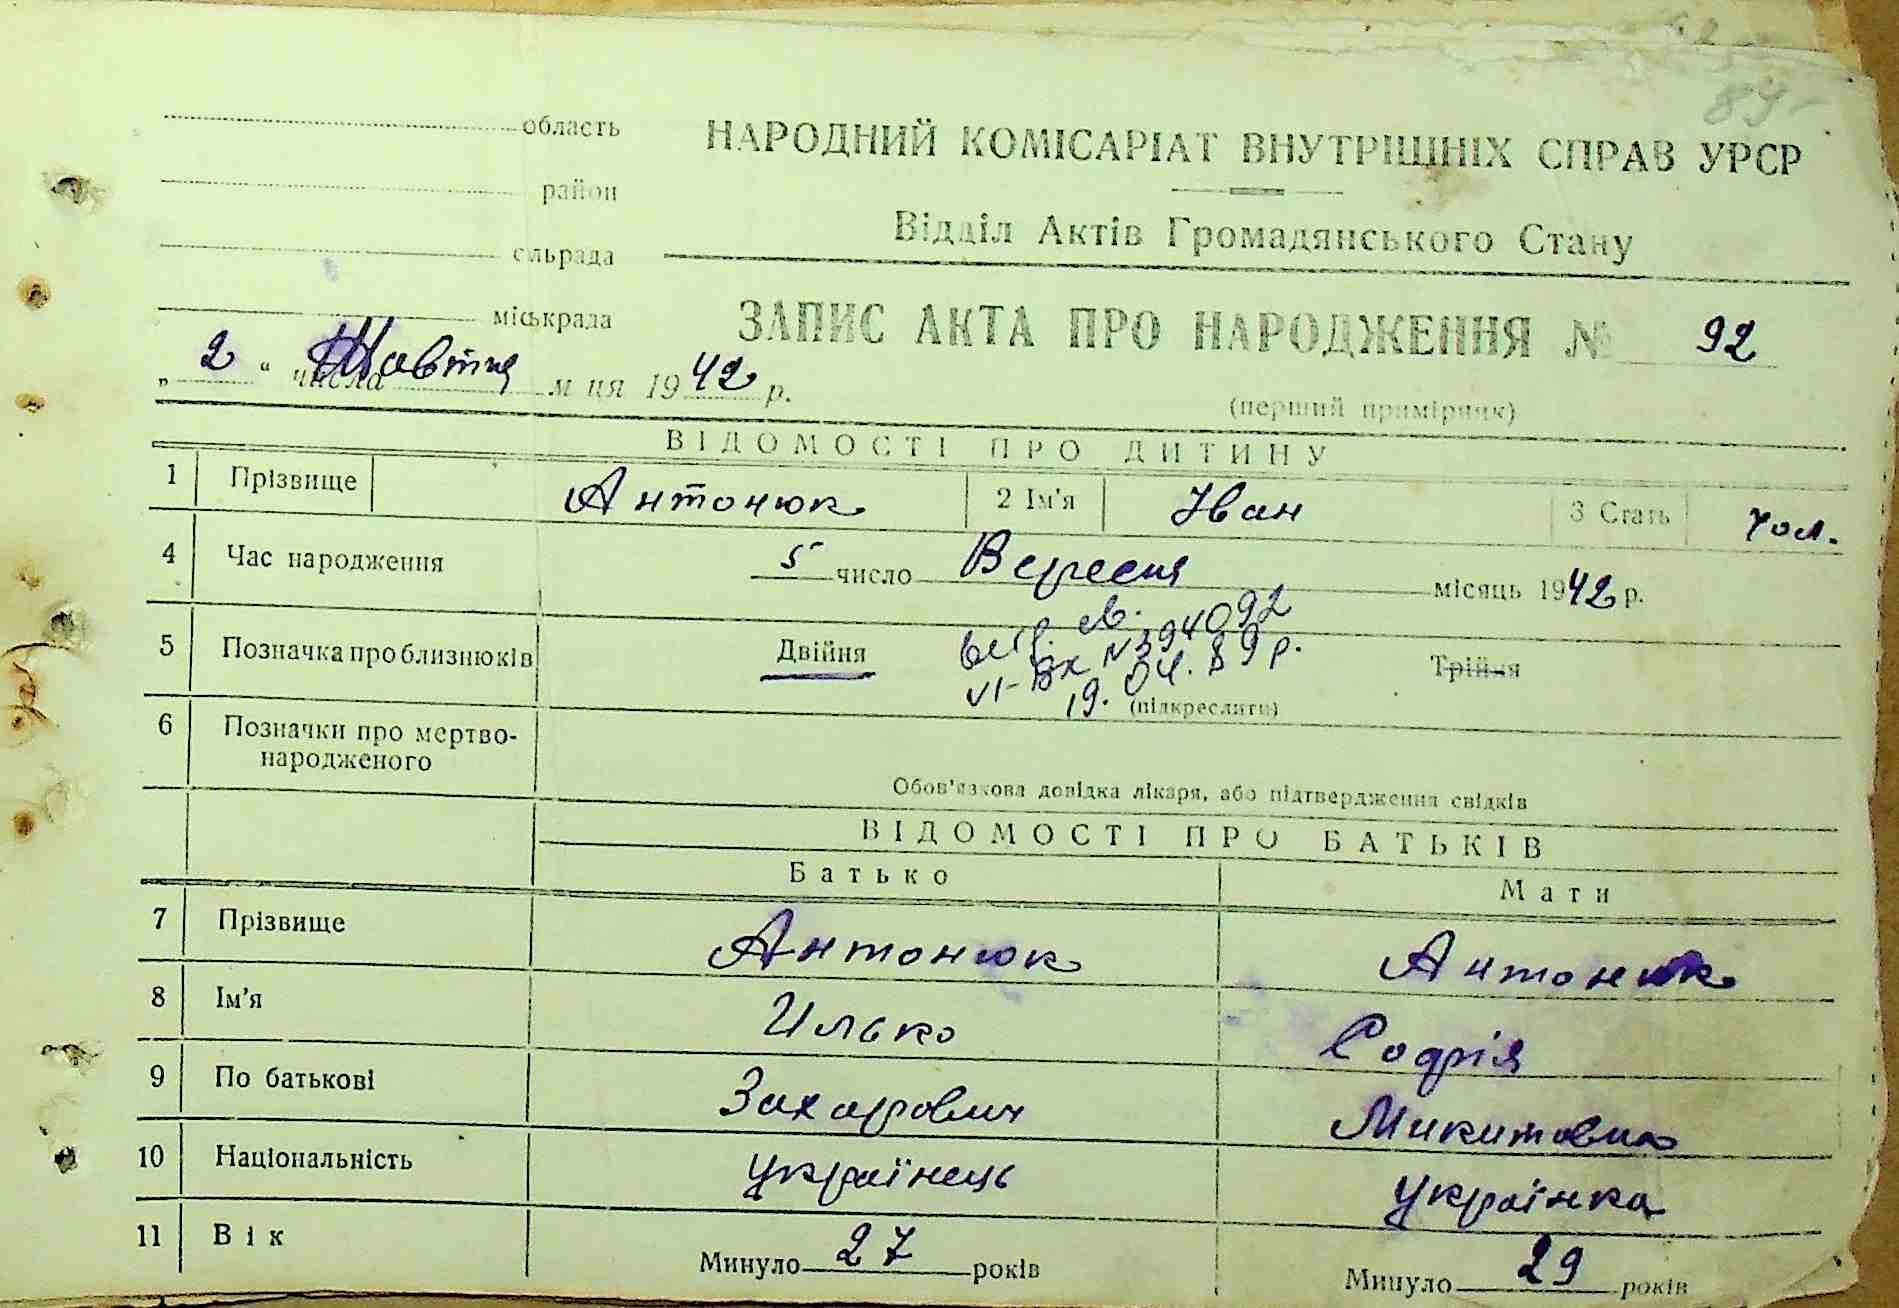 84
область
НАРОДНИЙ КОМІСАРІАТ ВНУТРІШНІХ СПРАВ УРСР
район
Відділ Актів Громадянського Стану
сільрада
міськрада
ЗАПИС АКТА ПРО НАРОДЖЕННЯ № 92
„ 2 “ числа Жовтня м ця 1942 р.
(перший примірник)
ВІДОМОСТІ ПРО ДИТИНУ
1 Прізвище Антонюк 2 Ім'я Іван 3 Стать чол.
4 Час народження 5 число Вересня місяць 1942 р.
5 Позначка про близнюків Двійня Трійня
N 394092
VI-БК 19.04.89 р.
(підкреслити)
6 Позначки про мертво-
народженого
Обов'язкова довідка лікаря, або підтвердження свідків
ВІДОМОСТІ ПРО БАТЬКІВ
Батько Мати
7 Прізвище Антонюк Антонюк
8 Ім'я Илько Софія
9 По батькові Захарович Микитовна
10 Національність українець українка
11 Вік Минуло 27 років Минуло 29 років